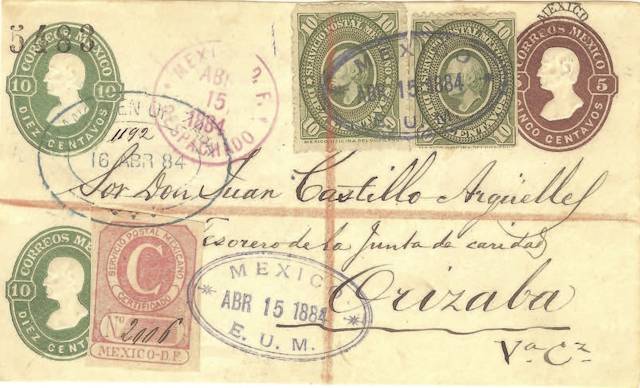 5483
CORREOS MEXICO
10 10
DIEZ CENTAVOS
MEXICO D.F.
ABR
15
1884
DESPACHADO
SERVICIO POSTAL MEXICANO
10 10
10 10
SERVICIO POSTAL MEXICANO
10 10
10 10
MEXICO
ABR 15 1884
E. U. M.
MEXICO
CORREOS MEXICO
5
CINCO CENTAVOS
1192
16 ABR 84
Sor Don Juan Castillo Argüelles
Tesorero de la Junta de caridad
Orizaba
Va Cz
CORREOS MEXICO
10
DIEZ CENTAVOS
SERVICIO POSTAL MEXICANO
C
CERTIFICADO
No 2006
MEXICO-D.F.
MEXICO
ABR 15 1884
E. U. M.